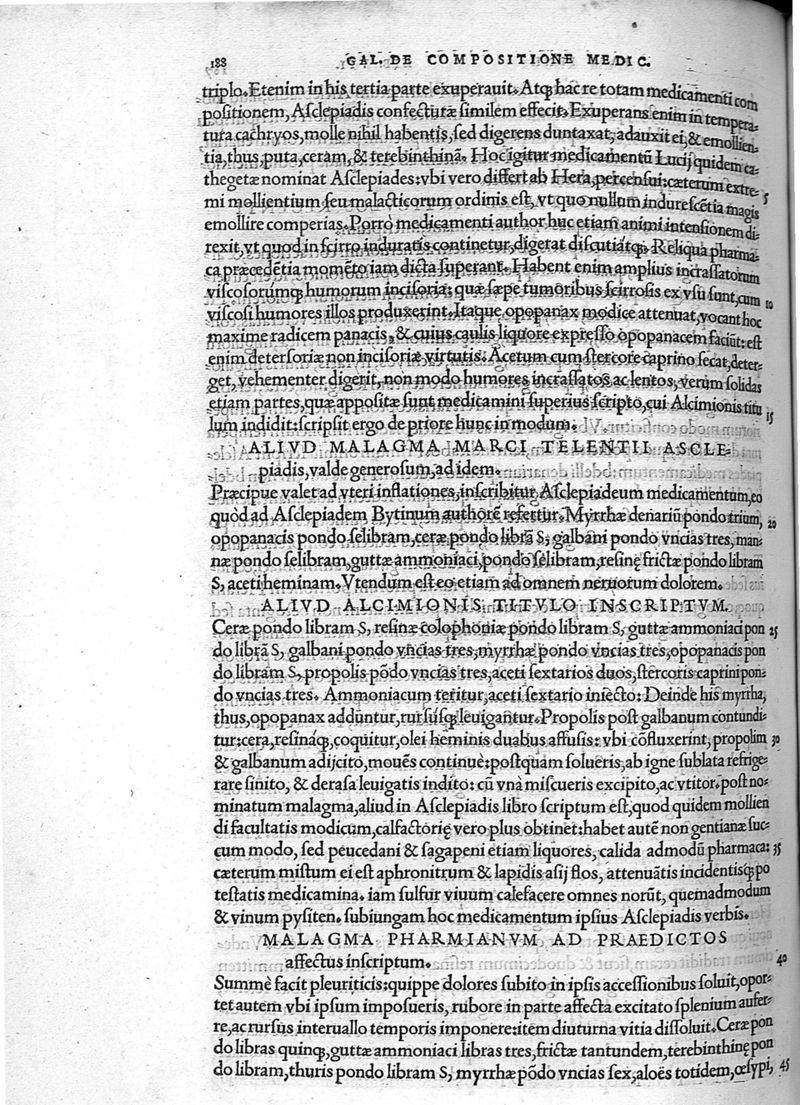 188 GAL. DE COMPOSITIONE MEDIC.
triplo. Etenim in his tertia parte exuperauit. Atq; hac re totam medicamenti com
positionem, Aſclepiadis confecturæ ſimilem effecit. Exuperans enim in tempera-
tura cachryos, molle nihil habentis, ſed digerens duntaxat, adauxit ei, & emollien-
tia, thus, puta, ceram, & terebinthinã. Hoc igitur medicamentũ Lucij quidem ca-
thegetæ nominat Aſclepiades: vbi vero differt ab Hera, percenſui: cæterum extre- 5
mi mollientium ſeu malacticorum ordinis eſt, vt quo nullum indureſcẽtia magis
emollire comperias. Porrò medicamenti author huc etiam animi intenſionem di-
rexit, vt quod in ſcirro induratis continetur, digerat diſcutiatq;. Reliqua pharma-
ca præcedẽtia momẽto iam dicta ſuperant. Habent enim amplius incraſſatorum
viſcoſorumq; humorum inciſoria: quæ ſæpe tumoribus ſcirroſis ex vſu ſunt, cum 10
viſcoſi humores illos produxerint. Itaque opopanax modice attenuat, vocant hoc
maxime radicem panacis, & cuius caulis liquore expreſſo opopanacem faciũt: eſt
enim deterſoriæ non inciſoriæ virtutis. Acetum cum ſtercore caprino ſecat, deter-
get, vehementer digerit, non modo humores incraſſatos ac lentos, verum ſolidas
etiam partes, quæ appoſitæ ſunt medicamini ſuperius ſcripto, cui Alcimionis titu 15
lum indidit: ſcripſit ergo de priore hunc in modum.
ALIVD MALAGMA MARCI TELENTII ASCLE-
piadis, valde generoſum, ad idem.
Præcipue valet ad vteri inflationes, inſcribitur Aſclepiadeum medicamentum, eo
quòd ad Aſclepiadem Bytinum authorẽ refertur. Myrrhæ denariũ pondo trium, 20
opopanacis pondo ſelibram, ceræ pondo librã S, galbani pondo vncias tres, man-
næ pondo ſelibram, guttæ ammoniaci, pondo ſelibram, reſinę frictæ pondo libram
S, aceti heminam. Vtendum eſt eo etiam ad omnem neruorum dolorem.
ALIVD ALCIMIONIS TITVLO INSCRIPTVM.
Ceræ pondo libram S, reſinæ colophoniæ pondo libram S, guttæ ammoniaci pon 25
do librã S, galbani pondo vncias tres, myrrhæ pondo vncias tres, opopanacis pon
do libram S, propolis põdo vncias tres, aceti ſextarios duos, ſtercoris caprini pon-
do vncias tres. Ammoniacum teritur, aceti ſextario iniecto: Deinde his myrrha,
thus, opopanax adduntur, rurſúſq; leuigantur. Propolis poſt galbanum contundi-
tur: cera, reſináq;, coquitur, olei heminis duabus affuſis: vbi cõfluxerint, propolim 30
& galbanum adijcito, mouẽs continuè: poſtquam ſolueris, ab igne ſublata refrige-
rare ſinito, & deraſa leuigatis indito: cũ vnà miſcueris excipito, ac vtitor. poſt no-
minatum malagma, aliud in Aſclepiadis libro ſcriptum eſt, quod quidem mollien
di facultatis modicum, calfactorię vero plus obtinet: habet autẽ non gentianæ ſuc-
cum modo, ſed peucedani & ſagapeni etiam liquores, calida admodũ pharmaca: 35
cæterum miſtum ei eſt aphronitrum & lapidis aſij flos, attenuãtis incidentisq; po
teſtatis medicamina. iam ſulfur viuum calefacere omnes norũt, quemadmodum
& vinum pyſiten. ſubiungam hoc medicamentum ipſius Aſclepiadis verbis.
MALAGMA PHARMIANVM AD PRAEDICTOS
affectus inſcriptum. 40
Summè facit pleuriticis: quippe dolores ſubito in ipſis acceſſionibus ſoluit, opor-
tet autem vbi ipſum impoſueris, rubore in parte affecta excitato ſplenium aufer-
re, ac rurſus interuallo temporis imponere: item diuturna vitia diſſoluit. Ceræ pon
do libras quinq;, guttæ ammoniaci libras tres, frictæ tantundem, terebinthinę pon
do libram, thuris pondo libram S, myrrhæ põdo vncias ſex, aloës totidem, œſypi, 45